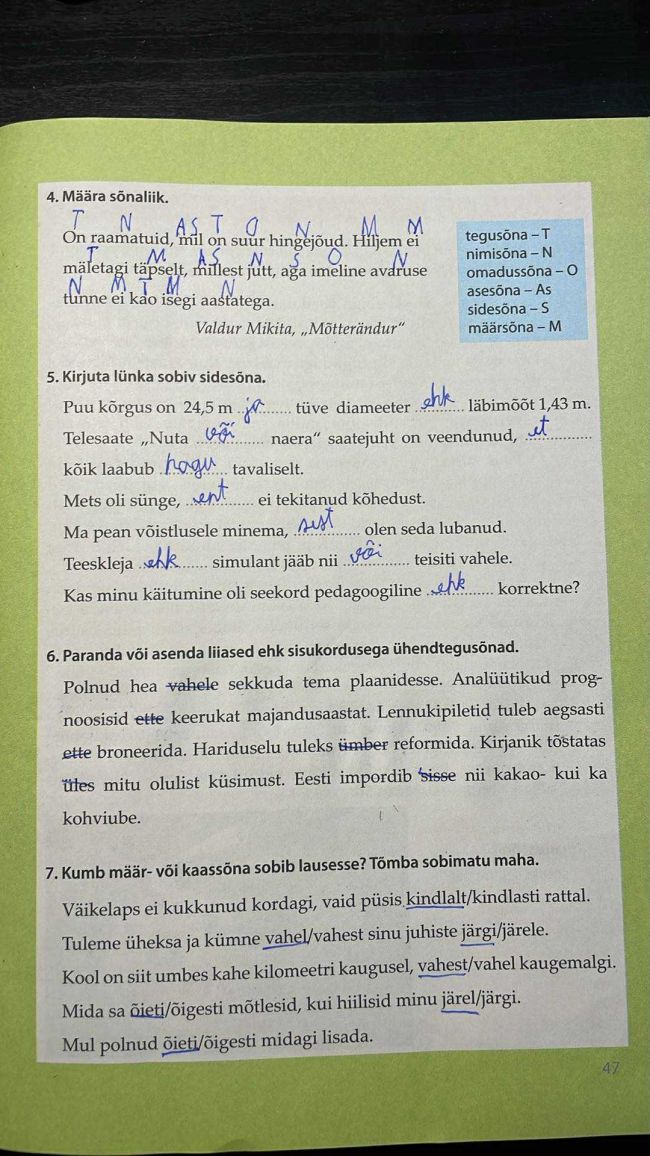 4. Määra sõnaliik.
T N AS T O N M M
On raamatuid, mil on suur hingejõud. Hiljem ei
T M AS N S O N
mäletagi täpselt, millest jutt, aga imeline avaruse
N M T M N
tunne ei kao isegi aastatega.
Valdur Mikita, „Mõtterändur“
tegusõna – T
nimisõna – N
omadussõna – O
asesõna – As
sidesõna – S
määrsõna – M
5. Kirjuta lünka sobiv sidesõna.
Puu kõrgus on 24,5 m ja tüve diameeter ehk läbimõõt 1,43 m.
Telesaate „Nuta või naera“ saatejuht on veendunud, et
kõik laabub nagu tavaliselt.
Mets oli sünge, ent ei tekitanud kõhedust.
Ma pean võistlusele minema, sest olen seda lubanud.
Teeskleja ehk simulant jääb nii või teisiti vahele.
Kas minu käitumine oli seekord pedagoogiline ehk korrektne?
6. Paranda või asenda liiased ehk sisukordusega ühendtegusõnad.
Polnud hea vahele sekkuda tema plaanidesse. Analüütikud prog-
noosisid ette keerukat majandusaastat. Lennukipiletid tuleb aegsasti
ette broneerida. Hariduselu tuleks ümber reformida. Kirjanik tõstatas
üles mitu olulist küsimust. Eesti impordib sisse nii kakao- kui ka
kohviube.
7. Kumb määr- või kaassõna sobib lausesse? Tõmba sobimatu maha.
Väikelaps ei kukkunud kordagi, vaid püsis kindlalt/kindlasti rattal.
Tuleme üheksa ja kümne vahel/vahest sinu juhiste järgi/järele.
Kool on siit umbes kahe kilomeetri kaugusel, vahest/vahel kaugemalgi.
Mida sa õieti/õigesti mõtlesid, kui hiilisid minu järel/järgi.
Mul polnud õieti/õigesti midagi lisada.
47